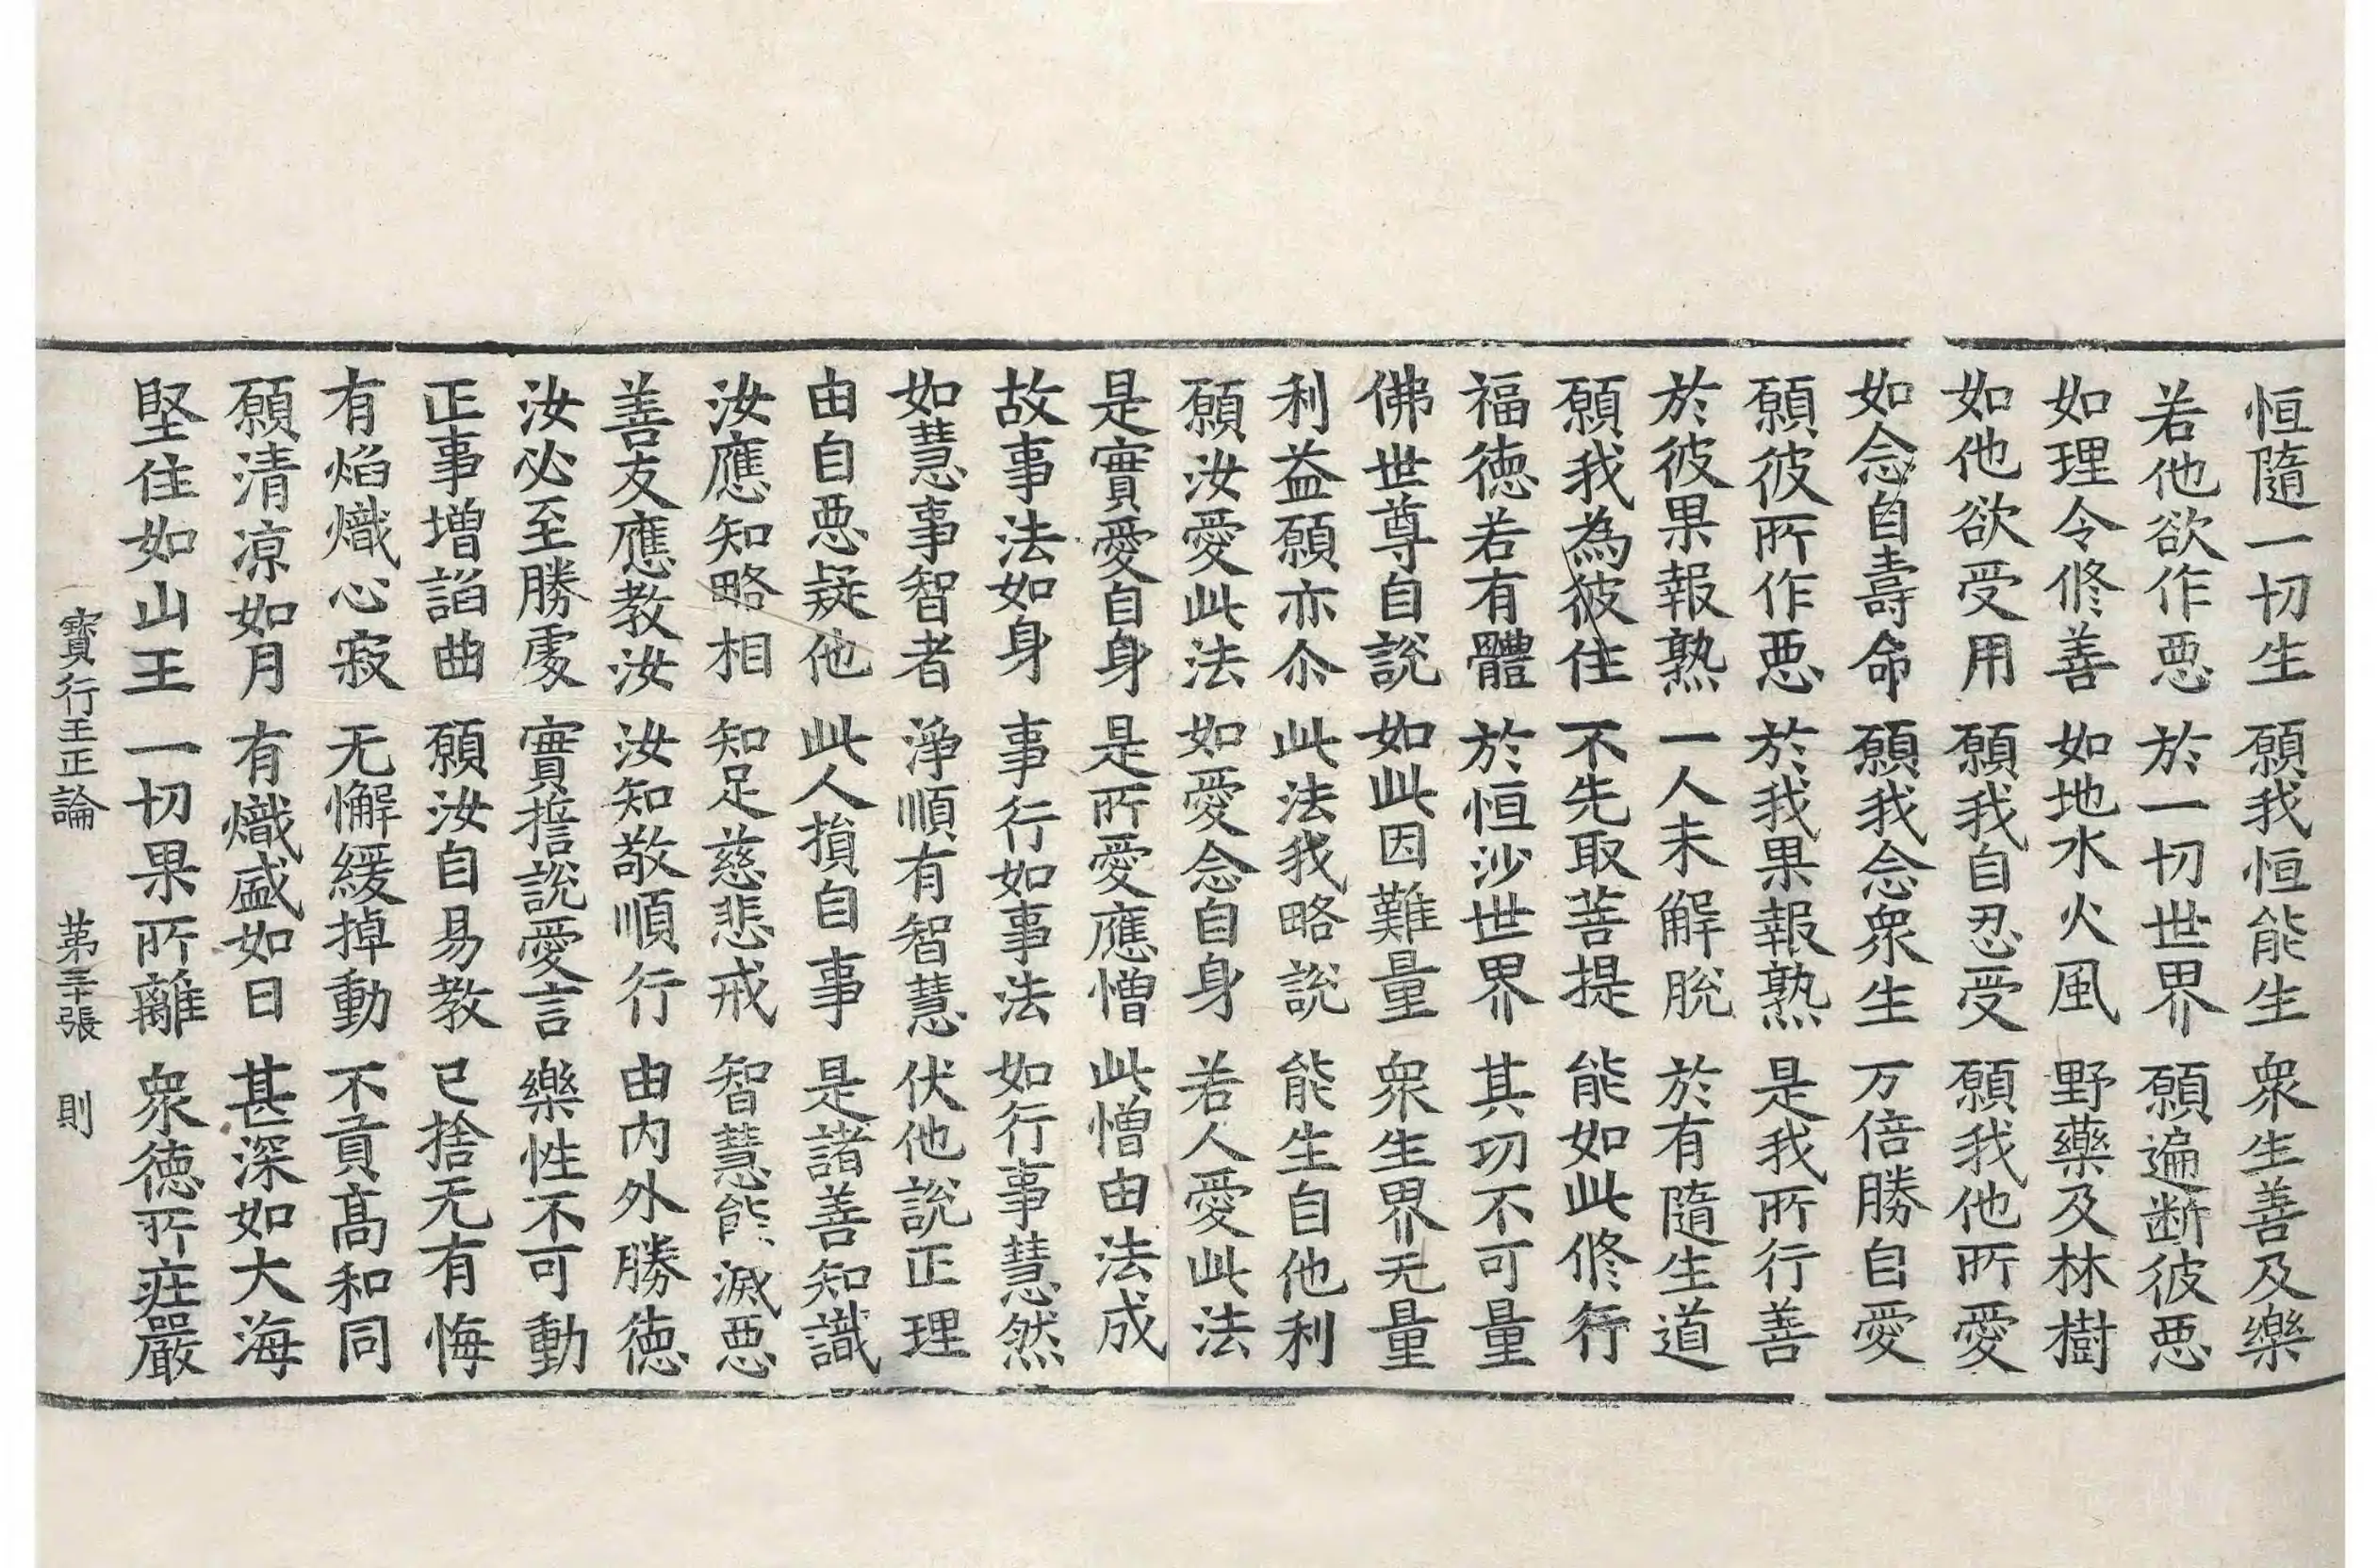 恒隨一切生 願我恒能生 衆生善及樂
若他欲作惡 於一切世界 願遍断彼惡
如理令修善 如地水火風 野藥及林樹
如他欲受用 願我自忍受 願我他所愛
如念自壽命 願我念衆生 万倍勝自愛
願彼所作惡 於我果報熟 是我所行善
於彼果報熟 一人未解脫 於有隨生道
願我為彼住 不先取菩提 能如此修行
福德若有體 於恒沙世界 其功不可量
佛世尊自說 如此因難量 衆生界无量
利益願亦尒 此法我略說 能生自他利
願汝愛此法 如愛念自身 若人愛此法
是實愛自身 是所愛應憎 此憎由法成
故事法如身 事行如事法 如行事慧然
如慧事智者 淨順有智慧 伏他說正理
由自惡疑他 此人損自事 是諸善知識
汝應知略相 知足慈悲戒 智慧能滅惡
善友應教汝 汝知敬順行 由內外勝德
汝必至勝處 實誓說愛言 樂性不可動
正事增諂曲 願汝自易教 已捨无有悔
有焰熾心寂 无懈緩掉動 不貢高和同
願清涼如月 有熾盛如日 甚深如大海
堅住如山王 一切果所離 衆德所庄嚴
寶行王正論 苐三十張 則